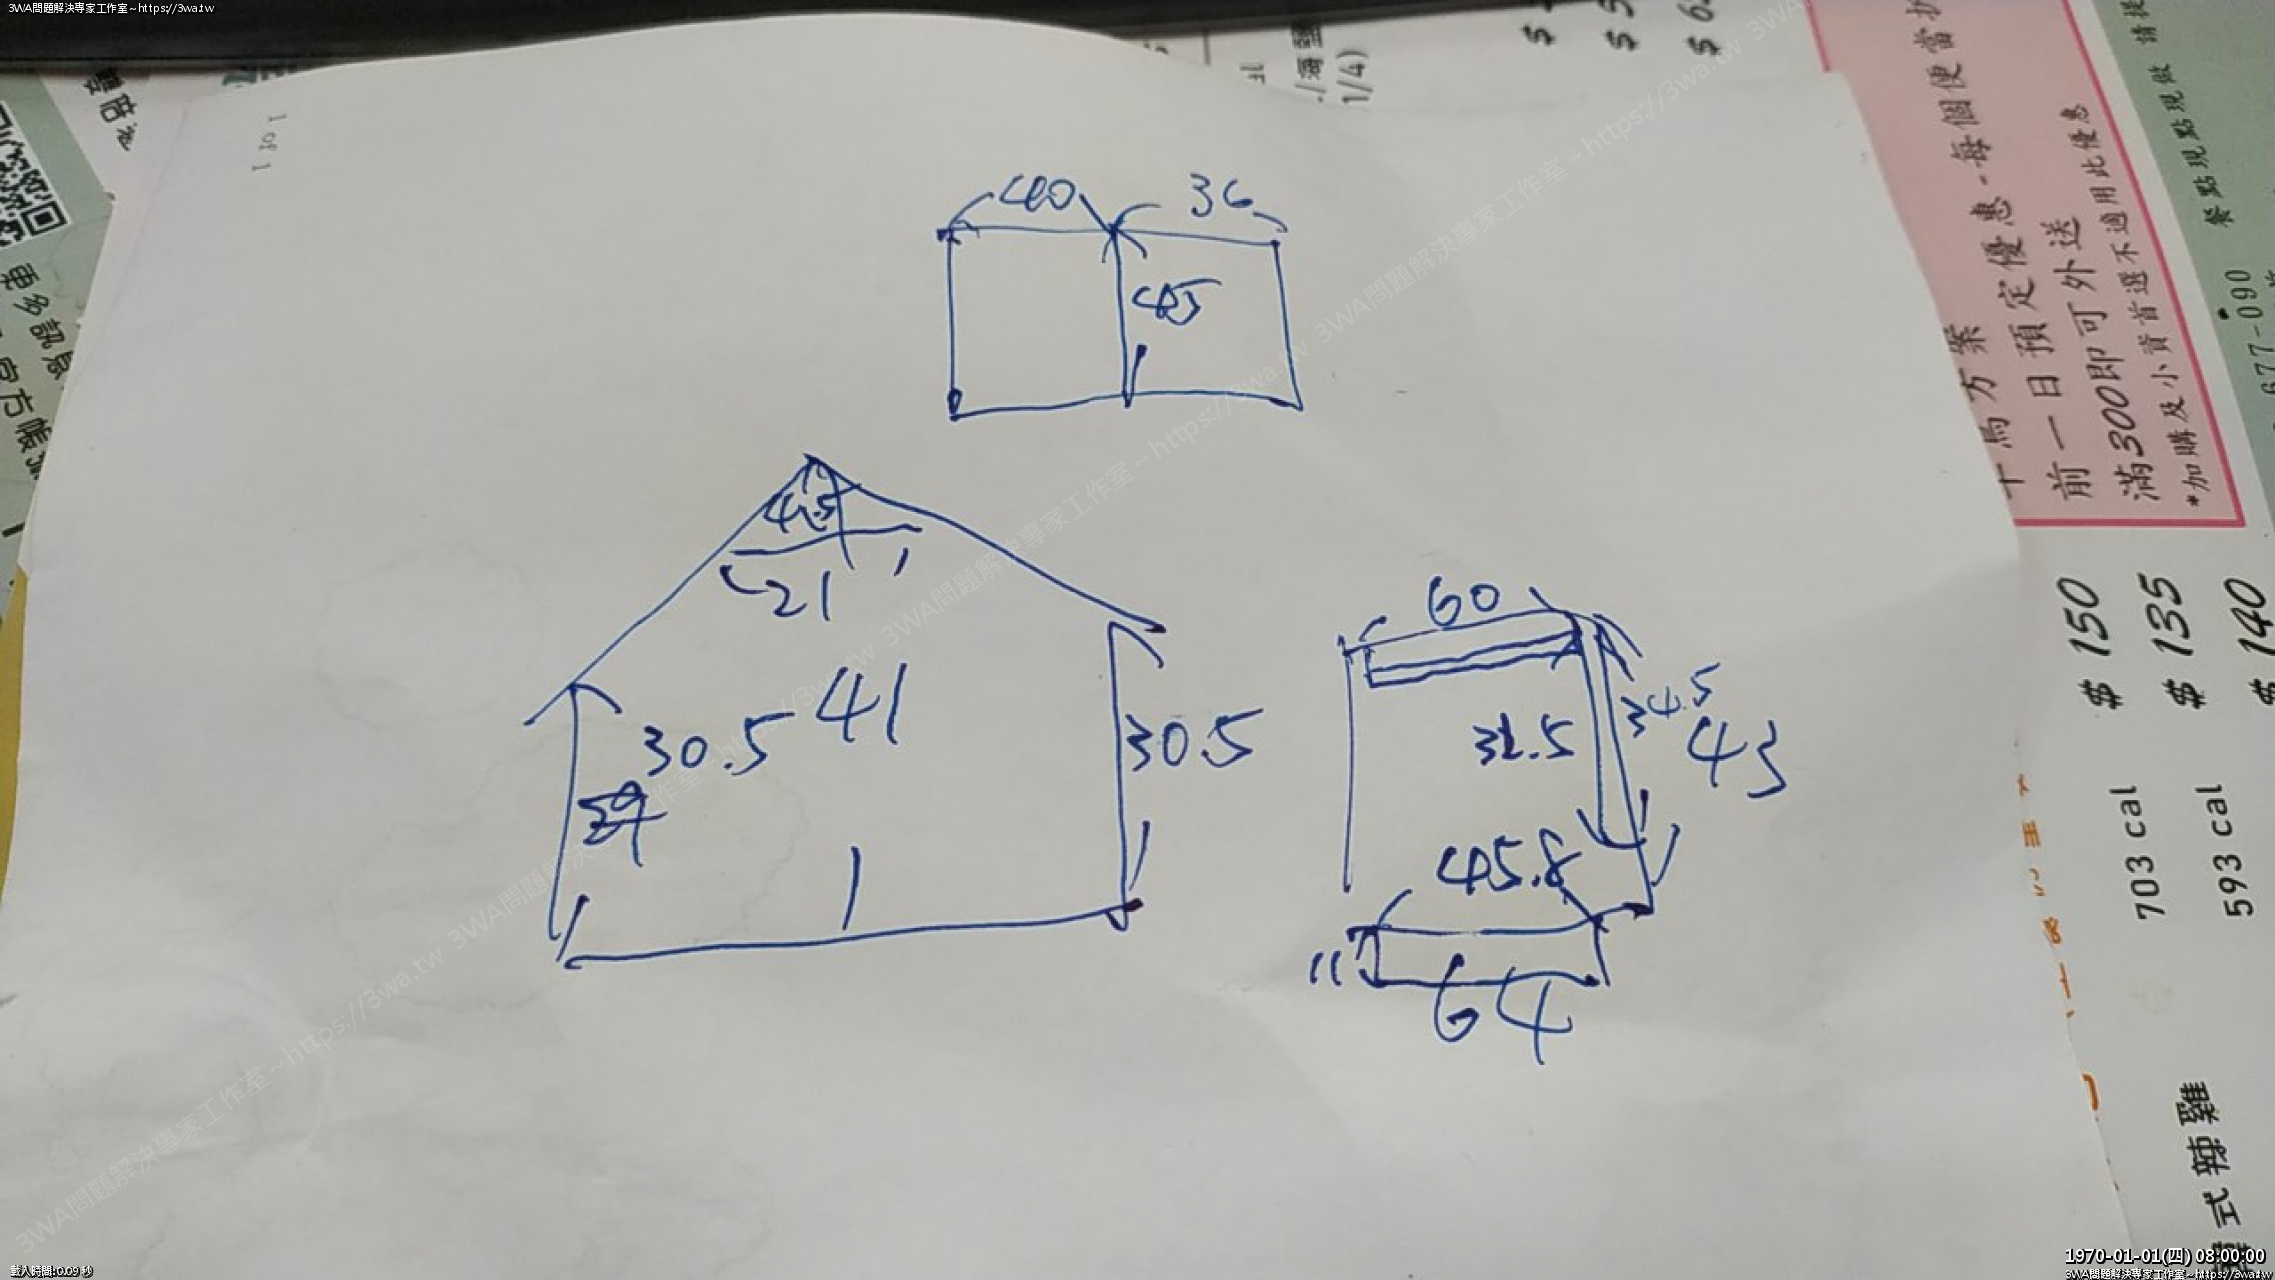 3WA問題解決專家工作室~https://3wa.tw
1 of 1
1/4)
$ 150
$ 135
$ 140
703 cal
593 cal
前一日預定優惠-每個便當折
滿300即可外送
*加購及小資首選不適用此優惠
餐點現點現做 請提
677-090
更多訊息
官方帳
40
36
45
4.5
21
41
30.5
30.5
60
32.5
34.5
43
45.8
11
64
式辣雞
載入時間:0.09 秒
1970-01-01(四) 08:00:00
3WA問題解決專家工作室~https://3wa.tw